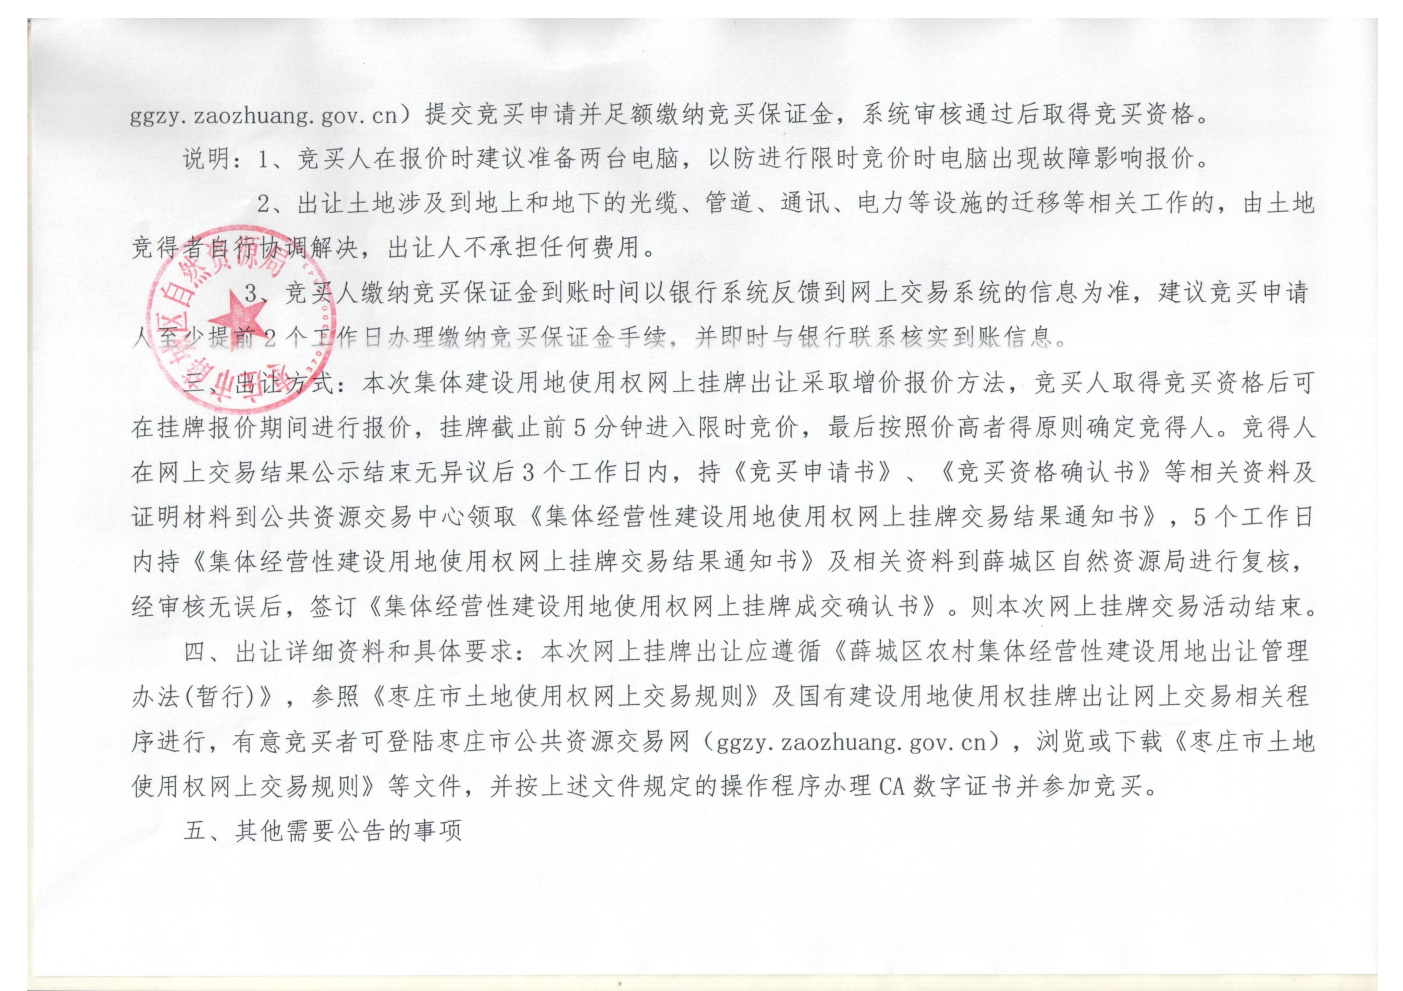 ggzy.zaozhuang.gov.cn）提交竞买申请并足额缴纳竞买保证金，系统审核通过后取得竞买资格。
说明：1、竞买人在报价时建议准备两台电脑，以防进行限时竞价时电脑出现故障影响报价。
2、出让土地涉及到地上和地下的光缆、管道、通讯、电力等设施的迁移等相关工作的，由土地
竞得者自行协调解决，出让人不承担任何费用。
3、竞买人缴纳竞买保证金到账时间以银行系统反馈到网上交易系统的信息为准，建议竞买申请
人至少提前2个工作日办理缴纳竞买保证金手续，并即时与银行联系核实到账信息。
三、出让方式：本次集体建设用地使用权网上挂牌出让采取增价报价方法，竞买人取得竞买资格后可
在挂牌报价期间进行报价，挂牌截止前5分钟进入限时竞价，最后按照价高者得原则确定竞得人。竞得人
在网上交易结果公示结束无异议后3个工作日内，持《竞买申请书》、《竞买资格确认书》等相关资料及
证明材料到公共资源交易中心领取《集体经营性建设用地使用权网上挂牌交易结果通知书》，5个工作日
内持《集体经营性建设用地使用权网上挂牌交易结果通知书》及相关资料到薛城区自然资源局进行复核，
经审核无误后，签订《集体经营性建设用地使用权网上挂牌成交确认书》。则本次网上挂牌交易活动结束。
四、出让详细资料和具体要求：本次网上挂牌出让应遵循《薛城区农村集体经营性建设用地出让管理
办法(暂行)》，参照《枣庄市土地使用权网上交易规则》及国有建设用地使用权挂牌出让网上交易相关程
序进行，有意竞买者可登陆枣庄市公共资源交易网（ggzy.zaozhuang.gov.cn），浏览或下载《枣庄市土地
使用权网上交易规则》等文件，并按上述文件规定的操作程序办理CA数字证书并参加竞买。
五、其他需要公告的事项
枣庄市薛城区自然资源局